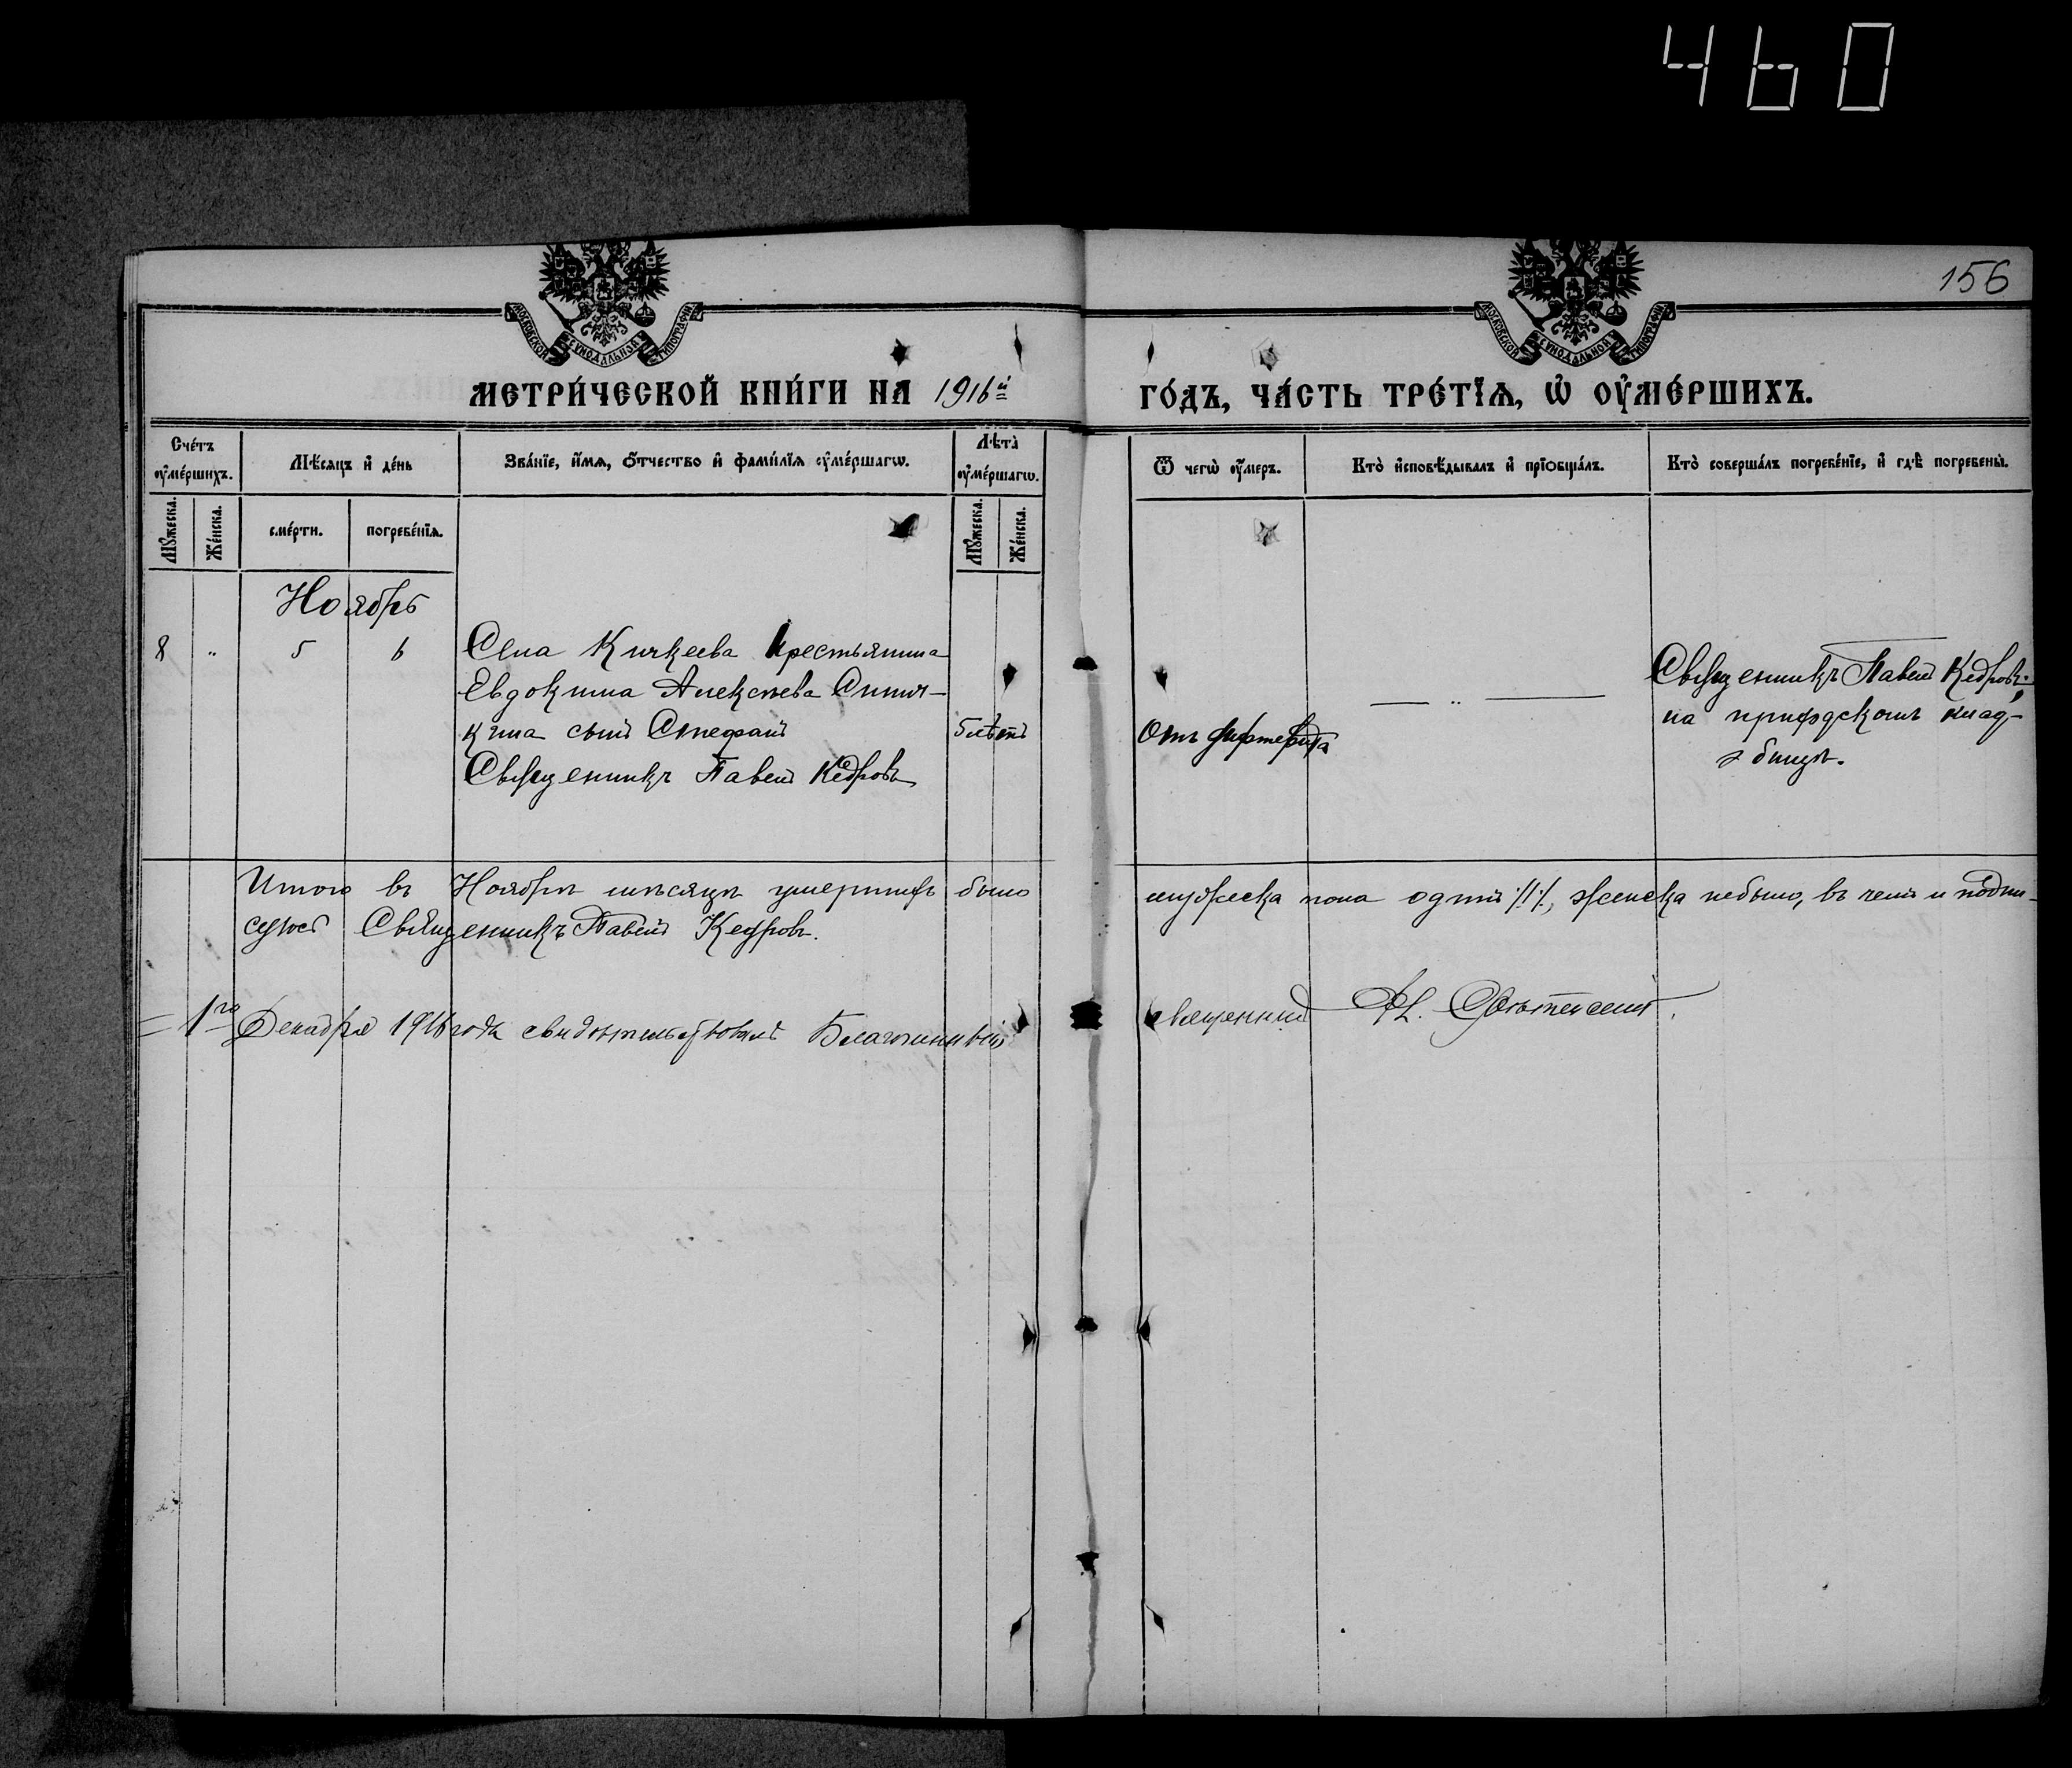 460
156
МОСКОВСКОЙ СѴНОДАЛЬНОЙ ТИПОГРАФІИ
МОСКОВСКОЙ СѴНОДАЛЬНОЙ ТИПОГРАФІИ
МЕТРИ́ЧЕСКОЙ КНИ́ГИ НА 1916й
ГО́ДЪ, ЧА́СТЬ ТРЕ́ТІѦ, Ѡ ОУ҆МЕ́РШИХЪ.
Сче́тъ оу҆ме́ршихъ.
Мѣ́сѧцъ и҆ де́нь
Зва́нїе, и҆́мѧ, ѻ҆́тчество и҆ фами́лїѧ оу҆ме́ршагѡ.
Лѣ́та оу҆ме́ршагѡ.
Ѿ чегѡ̀ оу҆́меръ.
Кто̀ и҆сповѣ́дывалъ и҆ прїѡбща́лъ.
Кто̀ соверша́лъ погребе́нїе, и҆ гдѣ̀ погребены̀.
Мꙋ́жеска.
Же́нска.
сме́рти.
погребе́нїѧ.
Мꙋ́жеска.
Же́нска.
Ноябрь
8 " 5 6
Села Кичкеева крестьянина
Евдокима Алексѣева
сынъ Стефанъ
Священникъ Павелъ Кедровъ
5 лѣтъ
Отъ дифтерита
— " —
Священникъ Павелъ Кедровъ;
на приходскомъ клад-
бищѣ.
Итого въ Ноябрѣ мѣсяцѣ умершихъ было мужеска пола одинъ /1/, женска небыло, въ чемъ и подпи-
суюсь Священникъ Павелъ Кедровъ.
= 1го Декабря 1916 года свидѣтельствовалъ Благочинный священникъ